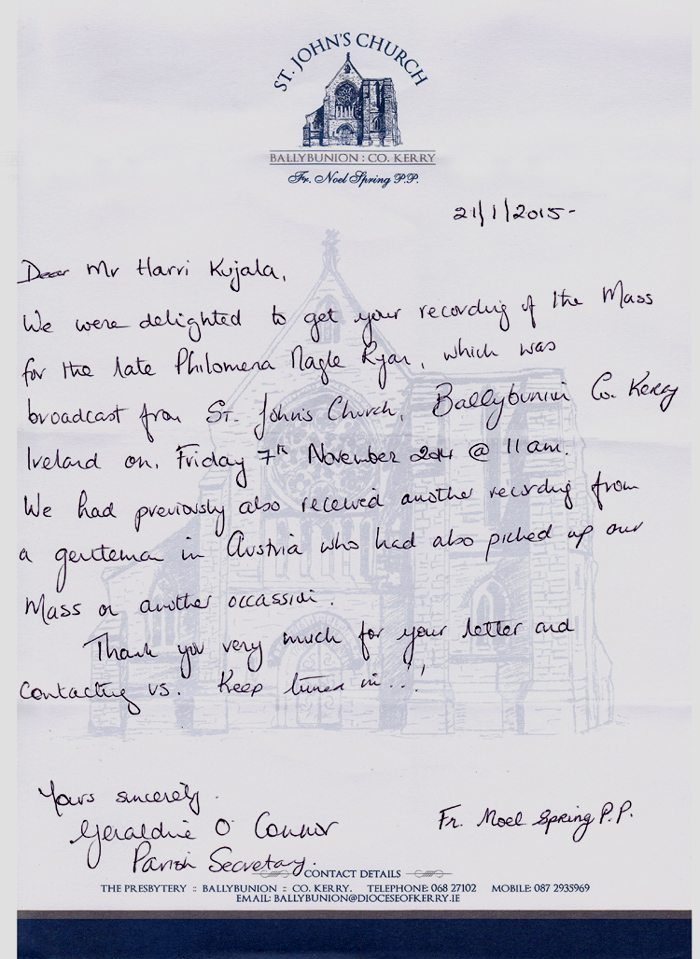 ST. JOHN'S CHURCH
BALLYBUNION : CO. KERRY
Fr. Noel Spring P.P.
21/1/2015-
Dear Mr Harri Kujala,
We were delighted to get your recording of the Mass
for the late Philomena Nagle Ryan, which was
broadcast from St. John's Church, Ballybunion Co. Kerry
Ireland on, Friday 7th November 2014 @ 11am.
We had previously also received another recording from
a gentleman in Austria who had also picked up our
Mass on another occassion.
Thank you very much for your letter and
contacting us. Keep tuned in..!
Yours sincerely.
Geraldine O' Connor
Fr. Noel Spring P.P.
Parish Secretary.
CONTACT DETAILS
THE PRESBYTERY :: BALLYBUNION :: CO. KERRY. TELEPHONE: 068 27102 MOBILE: 087 2935969
EMAIL: BALLYBUNION@DIOCESEOFKERRY.IE